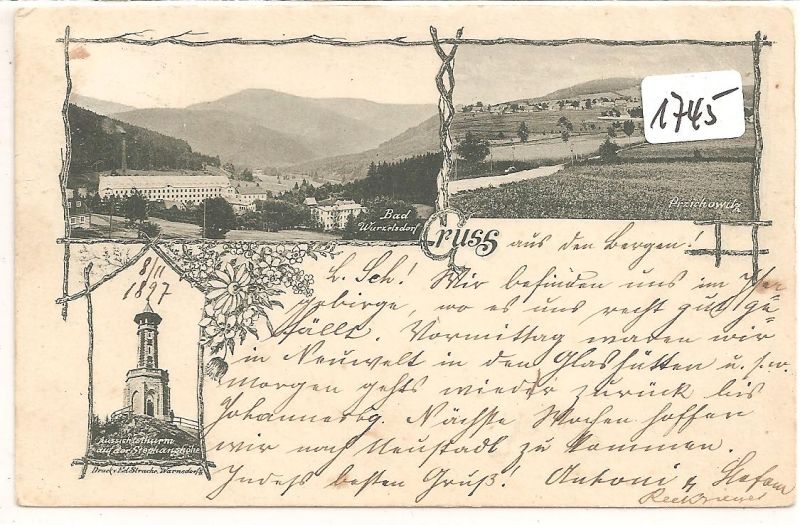 1745
Bad
Wurzelsdorf
Przichowitz
Gruss aus den Bergen!
8/11
1897
L. Sch! Wir befinden uns im Iser
gebirge, wo es uns recht gut ge=
fällt. Vormittag waren wir
in Neuwelt in den Glashütten u. s. w.
morgen gehts wieder zurück bis
Johannesbg. Nächste Wochen hoffen
wir nach Neustadl zu kommen.
Indess besten Gruß! Antoni &
Aussichtsthurm
auf der Stephanshöhe
Druck v. Ed. Strache, Warnsdorf